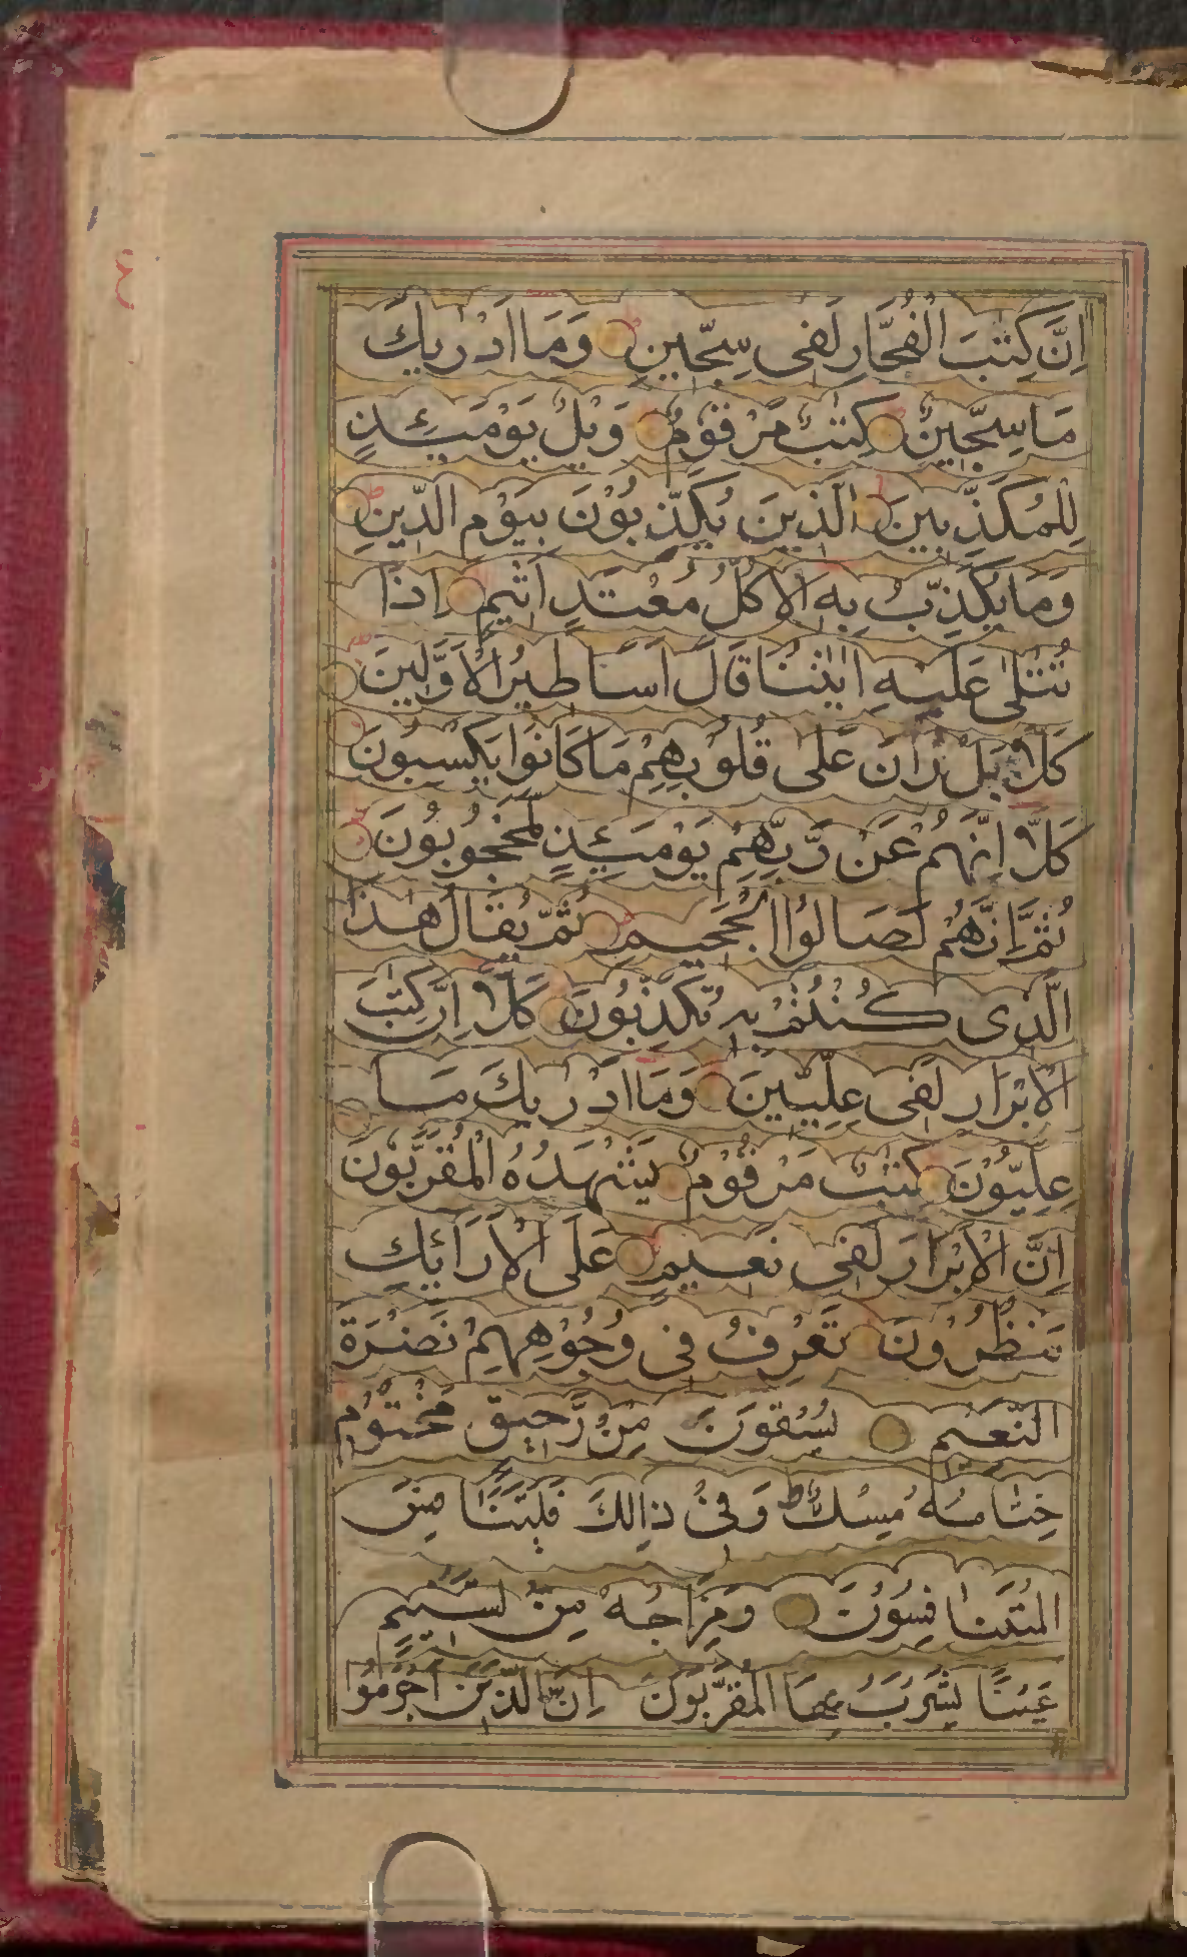 اِنَّ كِتٰبَ الْفُجَّارِ لَفِى سِجّٖينٍ وَمَا اَدْرٰيكَ
مَا سِجّٖينٌ كِتٰبٌ مَرْقُوْمٌ وَيْلٌ يَوْمَئِذٍ
لِلْمُكَذِّبٖينَ الَّذٖينَ يُكَذِّبُوْنَ بِيَوْمِ الدّٖينِ
وَمَا يُكَذِّبُ بِهٖ اِلَّا كُلُّ مُعْتَدٍ اَثٖيمٍ اِذَا
تُتْلٰى عَلَيْهِ اٰيٰتُنَا قَالَ اَسَاطٖيرُ الْاَوَّلٖينَ
كَلَّا بَلْ رَانَ عَلٰى قُلُوْبِهِمْ مَا كَانُوْا يَكْسِبُوْنَ
كَلَّا اِنَّهُمْ عَنْ رَّبِّهِمْ يَوْمَئِذٍ لَمَحْجُوْبُوْنَ
ثُمَّ اِنَّهُمْ لَصَالُوا الْجَحٖيمِ ثُمَّ يُقَالُ هٰذَا
الَّذٖى كُنْتُمْ بِهٖ تُكَذِّبُوْنَ كَلَّا اِنَّ كِتٰبَ
الْاَبْرَارِ لَفٖى عِلِّيّٖينَ وَمَا اَدْرٰيكَ مَا
عِلِّيُّوْنَ كِتٰبٌ مَرْقُوْمٌ يَشْهَدُهُ الْمُقَرَّبُوْنَ
اِنَّ الْاَبْرَارَ لَفٖى نَعٖيمٍ عَلَى الْاَرَائِكِ
يَنْظُرُوْنَ تَعْرِفُ فٖى وُجُوْهِهِمْ نَضْرَةَ
النَّعٖيمِ يُسْقَوْنَ مِنْ رَّحٖيقٍ مَخْتُوْمٍ
خِتَامُهُ مِسْكٌ ط وَفِىْ ذٰالِكَ فَلْيَتَنَا فس
الْمُتَنَافِسُوْنَ وَمِزَاجُهُ مِنْ تَسْنٖيمٍ
عَيْنًا يَشْرَبُ بِهَا الْمُقَرَّبُوْنَ اِنَّ الَّذٖينَ اَجْرَمُوْا